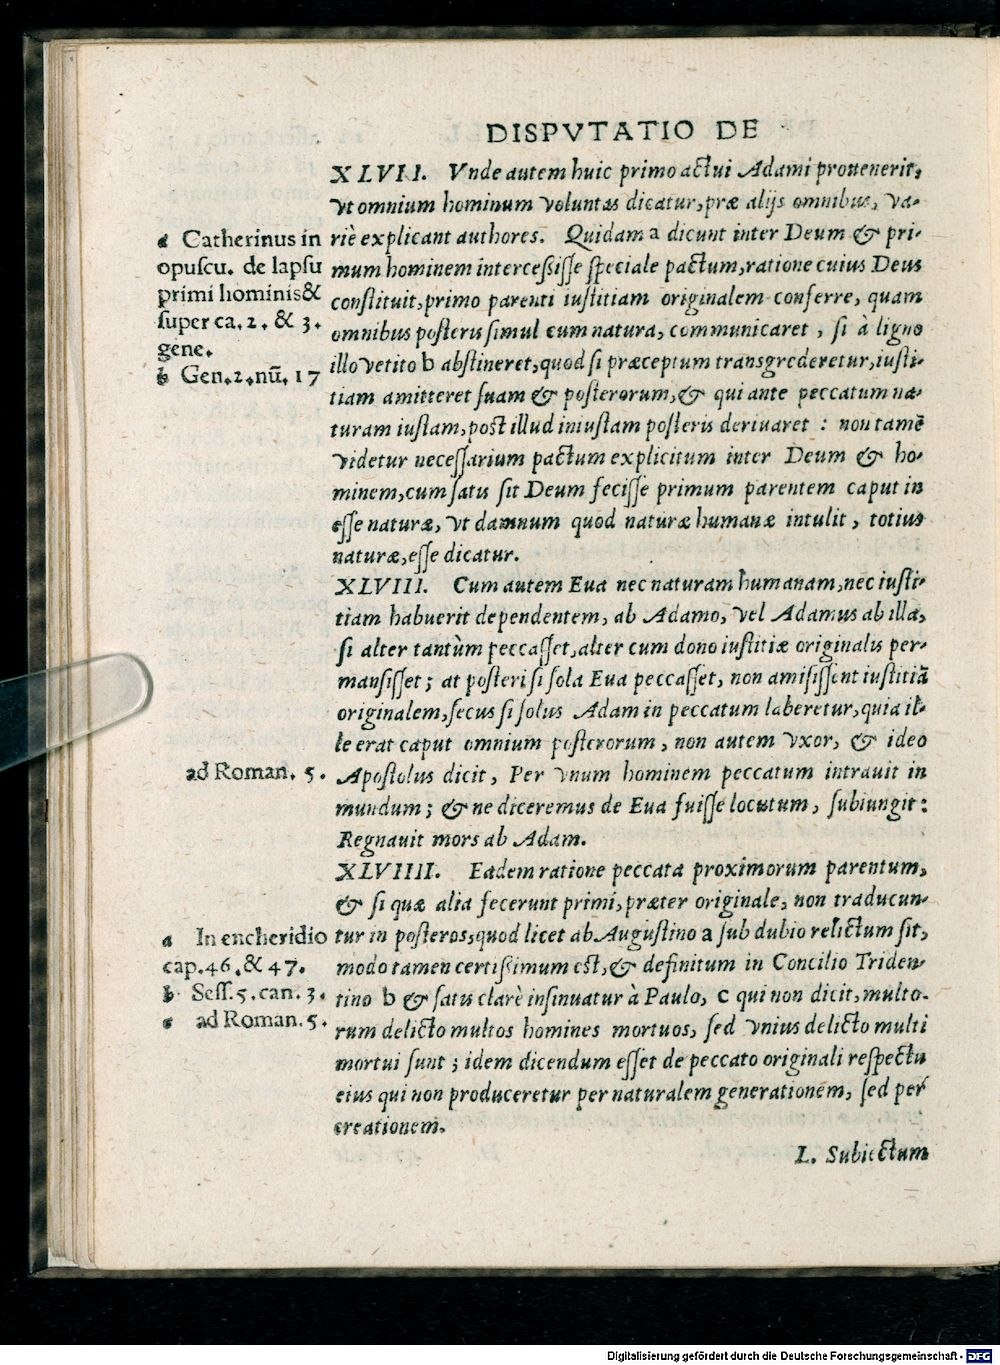 DISPVTATIO DE
XLVII. Vnde autem huic primo actui Adami prouenerit,
vt omnium hominum voluntas dicatur, præ alijs omnibus, va-
riè explicant authores. Quidam a dicunt inter Deum & pri-
mum hominem intercessisse speciale pactum, ratione cuius Deus
constituit, primo parenti iustitiam originalem conferre, quam
omnibus posteris simul cum natura, communicaret, si à ligno
illo vetito b abstineret, quod si præceptum transgrederetur, iusti-
tiam amitteret suam & posterorum, & qui ante peccatum na-
turam iustam, post illud iniustam posteris deriuaret : non tamē
videtur necessarium pactum explicitum inter Deum & ho-
minem, cum satis sit Deum fecisse primum parentem caput in
esse naturæ, vt damnum quod naturæ humanæ intulit, totius
naturæ, esse dicatur.
a Catherinus in
opuscu. de lapsu
primi hominis &
super ca. 2. & 3.
gene.
b Gen. 2. nū. 17
XLVIII. Cum autem Eua nec naturam humanam, nec iusti-
tiam habuerit dependentem, ab Adamo, vel Adamus ab illa,
si alter tantùm peccasset, alter cum dono iustitiæ originalis per-
mansisset; at posteri si sola Eua peccasset, non amisissent iustitiā
originalem, secus si solus Adam in peccatum laberetur, quia il-
le erat caput omnium posterorum, non autem vxor, & ideo
Apostolus dicit, Per vnum hominem peccatum intrauit in
mundum; & ne diceremus de Eua fuisse locutum, subiungit:
Regnauit mors ab Adam.
ad Roman. 5.
XLVIIII. Eadem ratione peccata proximorum parentum,
& si quæ alia fecerunt primi, præter originale, non traducun-
tur in posteros, quod licet ab Augustino a sub dubio relictum sit,
modo tamen certissimum est, & definitum in Concilio Triden-
tino b & satis clarè insinuatur à Paulo, c qui non dicit, multo-
rum delicto multos homines mortuos, sed vnius delicto multi
mortui sunt; idem dicendum esset de peccato originali respectu
eius qui non produceretur per naturalem generationem, sed per
creationem.
a In encheridio
cap. 46. & 47.
b Sess. 5. can. 3.
c ad Roman. 5.
L. Subiectum
Digitalisierung gefördert durch die Deutsche Forschungsgemeinschaft - DFG